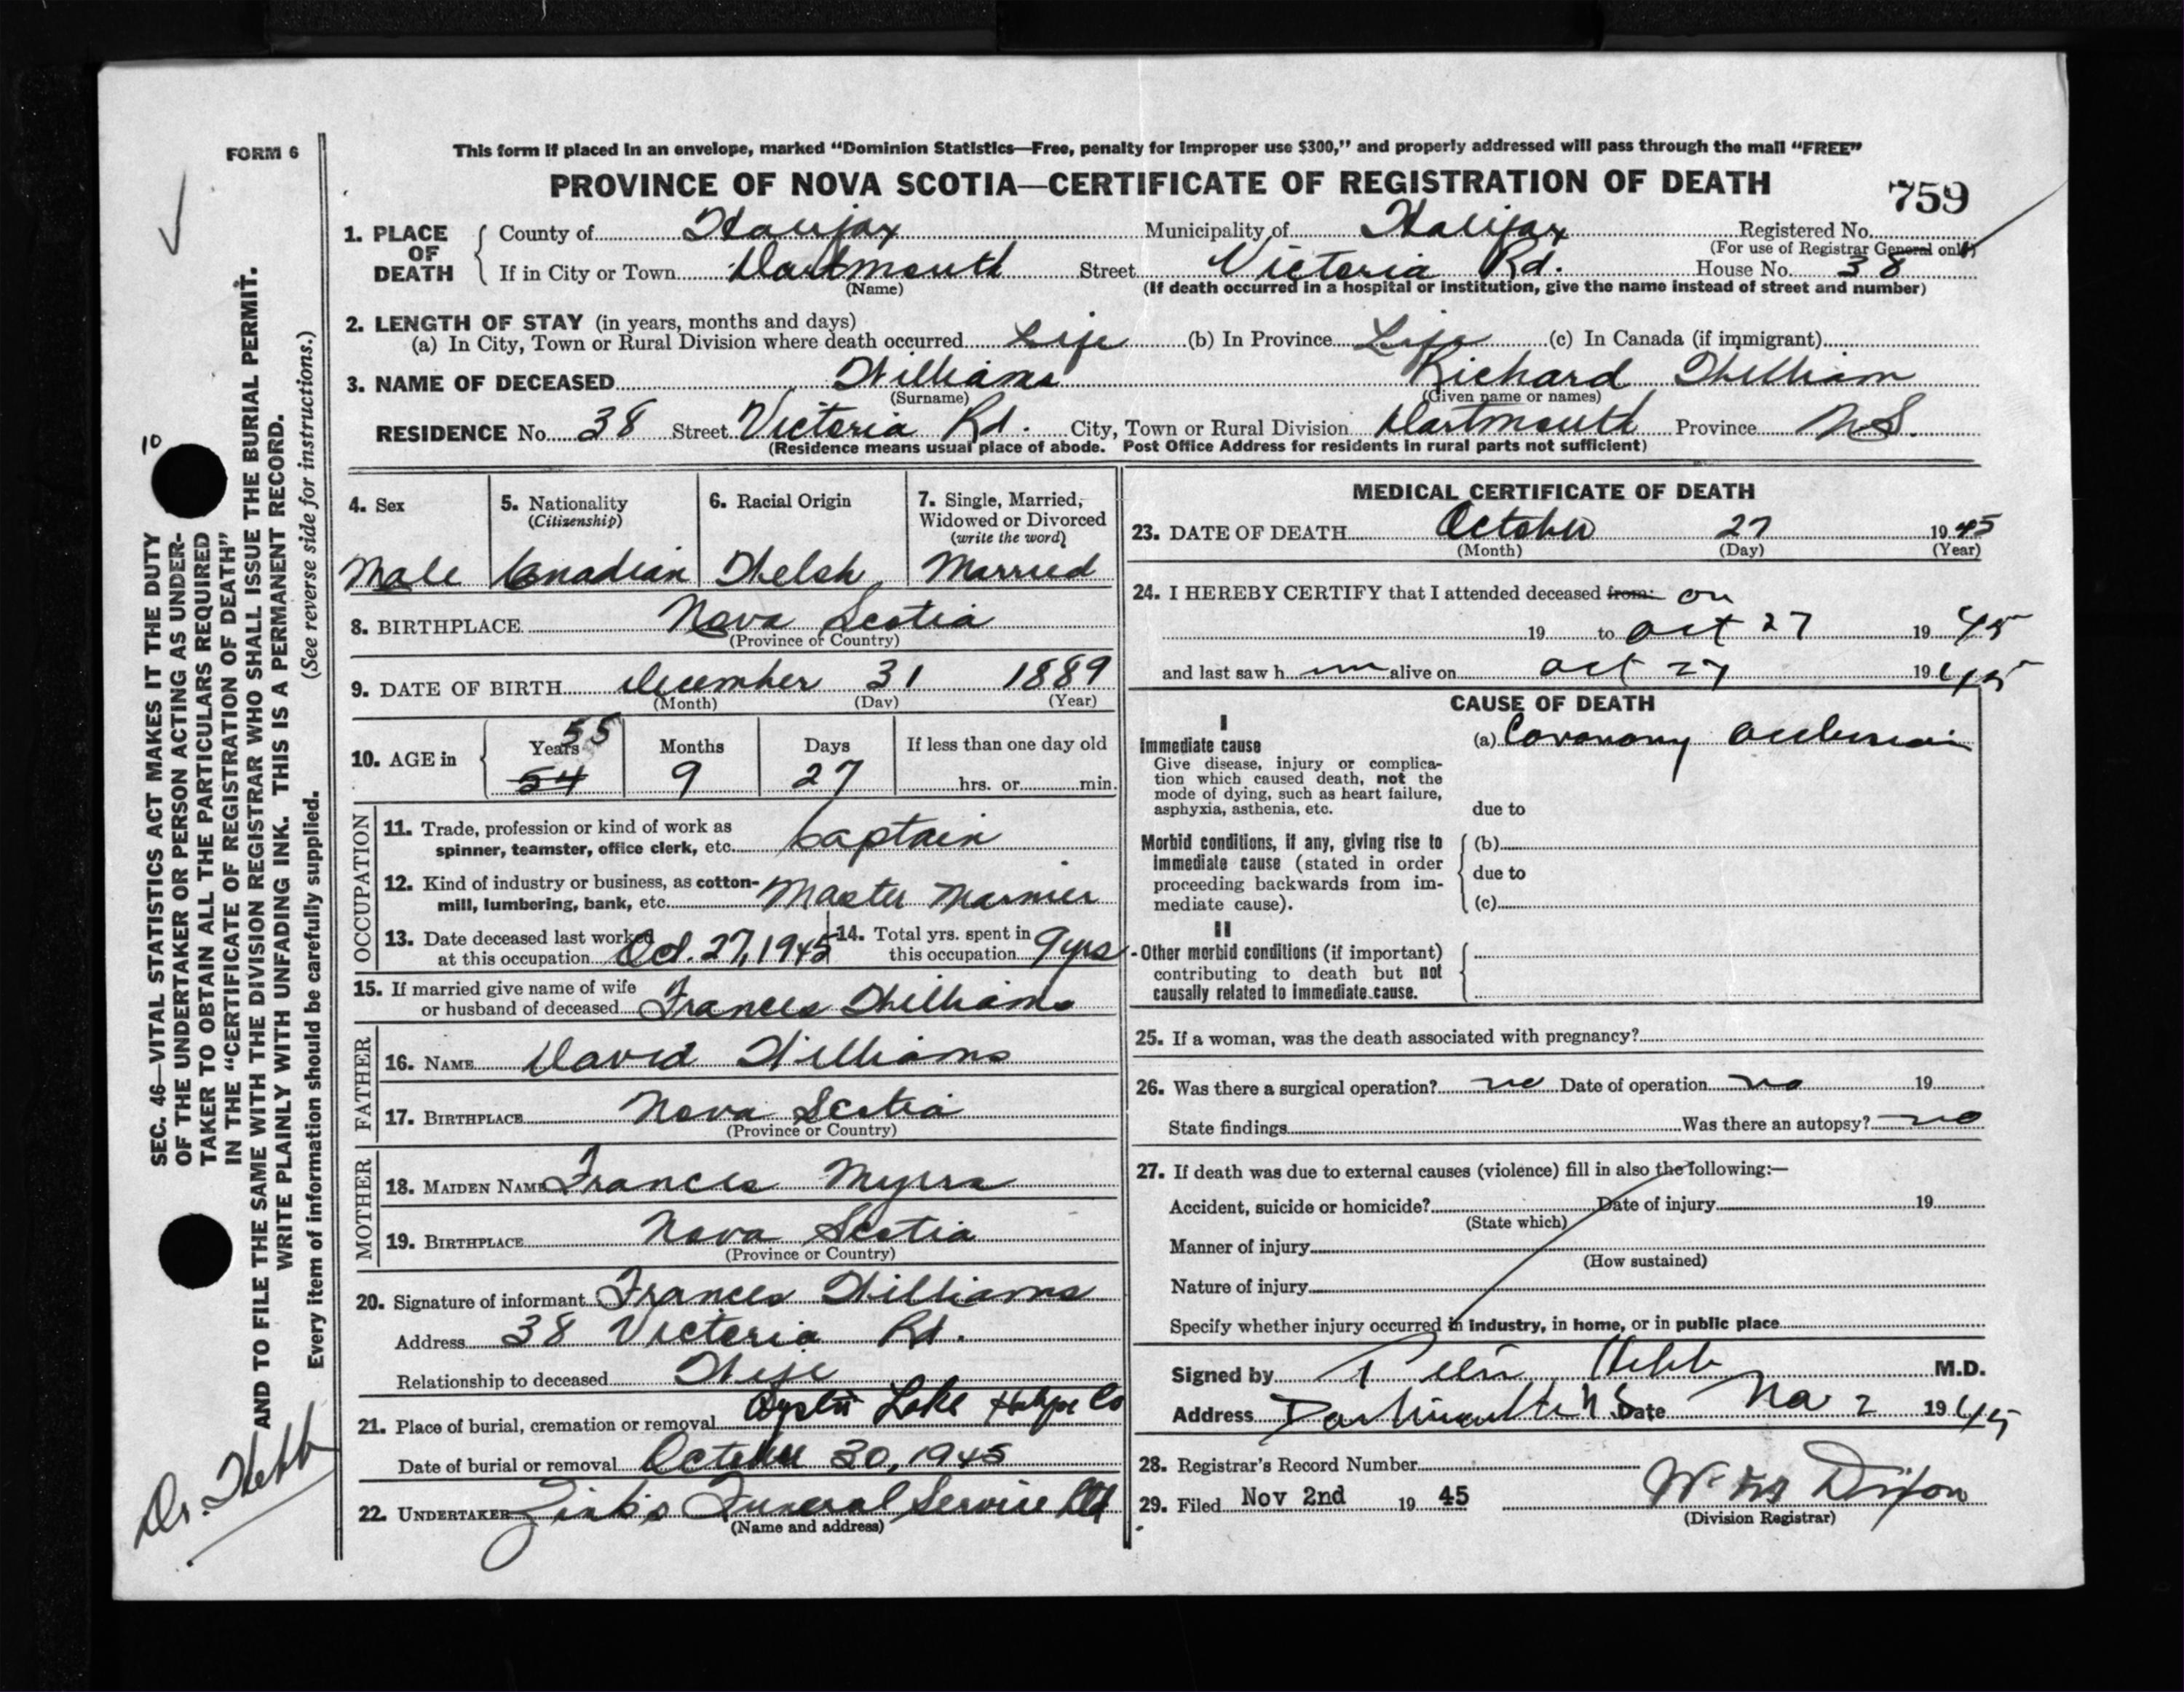 FORM 6
This form if placed in an envelope, marked "Dominion Statistics—Free, penalty for improper use $300," and properly addressed will pass through the mail "FREE"
PROVINCE OF NOVA SCOTIA—CERTIFICATE OF REGISTRATION OF DEATH
759
1. PLACE OF DEATH
County of Halifax Municipality of Halifax Registered No.
(For use of Registrar General only)
If in City or Town Dartmouth Street Victoria Rd. House No. 38
(Name) (If death occurred in a hospital or institution, give the name instead of street and number)
2. LENGTH OF STAY (in years, months and days)
(a) In City, Town or Rural Division where death occurred Life (b) In Province Life (c) In Canada (if immigrant)
3. NAME OF DECEASED Williams Richard William
(Surname) (Given name or names)
RESIDENCE No. 38 Street Victoria Rd. City, Town or Rural Division Dartmouth Province N.S.
(Residence means usual place of abode. Post Office Address for residents in rural parts not sufficient)
4. Sex
Male
5. Nationality
(Citizenship)
Canadian
6. Racial Origin
Welsh
7. Single, Married,
Widowed or Divorced
(write the word)
Married
8. BIRTHPLACE Nova Scotia
(Province or Country)
9. DATE OF BIRTH December 31 1889
(Month) (Day) (Year)
10. AGE in
Years 55 54
Months 9
Days 27
If less than one day old
hrs. or min.
OCCUPATION
11. Trade, profession or kind of work as
spinner, teamster, office clerk, etc. Captain
12. Kind of industry or business, as cotton-
mill, lumbering, bank, etc. Master Mariner
13. Date deceased last worked
at this occupation Oct. 27, 1945
14. Total yrs. spent in
this occupation 9 yrs
15. If married give name of wife
or husband of deceased Frances Williams
FATHER
16. NAME David Williams
17. BIRTHPLACE Nova Scotia
(Province or Country)
MOTHER
18. MAIDEN NAME Frances Myers
19. BIRTHPLACE Nova Scotia
(Province or Country)
20. Signature of informant Frances Williams
Address 38 Victoria Rd.
Relationship to deceased Wife
21. Place of burial, cremation or removal Oyster Lake Co
Date of burial or removal October 30, 1945
22. UNDERTAKER Zink's Funeral Service Ltd
(Name and address)
MEDICAL CERTIFICATE OF DEATH
23. DATE OF DEATH October 27 1945
(Month) (Day) (Year)
24. I HEREBY CERTIFY that I attended deceased from: on
19 to Oct 27 1945
and last saw h im alive on Oct 27 1945
CAUSE OF DEATH
I
Immediate cause
Give disease, injury or complica-
tion which caused death, not the
mode of dying, such as heart failure,
asphyxia, asthenia, etc.
(a) Coronary occlusion
due to
Morbid conditions, if any, giving rise to
immediate cause (stated in order
proceeding backwards from im-
mediate cause).
(b)
due to
(c)
II
Other morbid conditions (if important)
contributing to death but not
causally related to immediate cause.
25. If a woman, was the death associated with pregnancy?
26. Was there a surgical operation? no Date of operation no 19
State findings Was there an autopsy? no
27. If death was due to external causes (violence) fill in also the following:—
Accident, suicide or homicide? Date of injury 19
(State which)
Manner of injury
(How sustained)
Nature of injury
Specify whether injury occurred in industry, in home, or in public place
Signed by Hebb M.D.
Address Dartmouth NS Date Nov 2 1945
28. Registrar's Record Number
29. Filed Nov 2nd 19 45 Dixon
(Division Registrar)
10
SEC. 46—VITAL STATISTICS ACT MAKES IT THE DUTY
OF THE UNDERTAKER OR PERSON ACTING AS UNDER-
TAKER TO OBTAIN ALL THE PARTICULARS REQUIRED
IN THE "CERTIFICATE OF REGISTRATION OF DEATH"
AND TO FILE THE SAME WITH THE DIVISION REGISTRAR WHO SHALL ISSUE THE BURIAL PERMIT.
WRITE PLAINLY WITH UNFADING INK. THIS IS A PERMANENT RECORD.
Every item of information should be carefully supplied. (See reverse side for instructions.)
Dr. Hebb